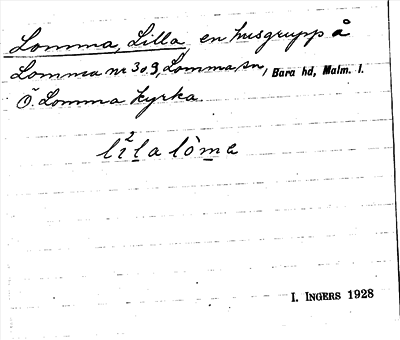 Lomma, Lilla, en husgrupp å
Lomma nr 3 o 9, Lomma sn, Bara hd, Malm. l.
Ö. Lomma kyrka.
2
lila lòme
I. INGERS 1928